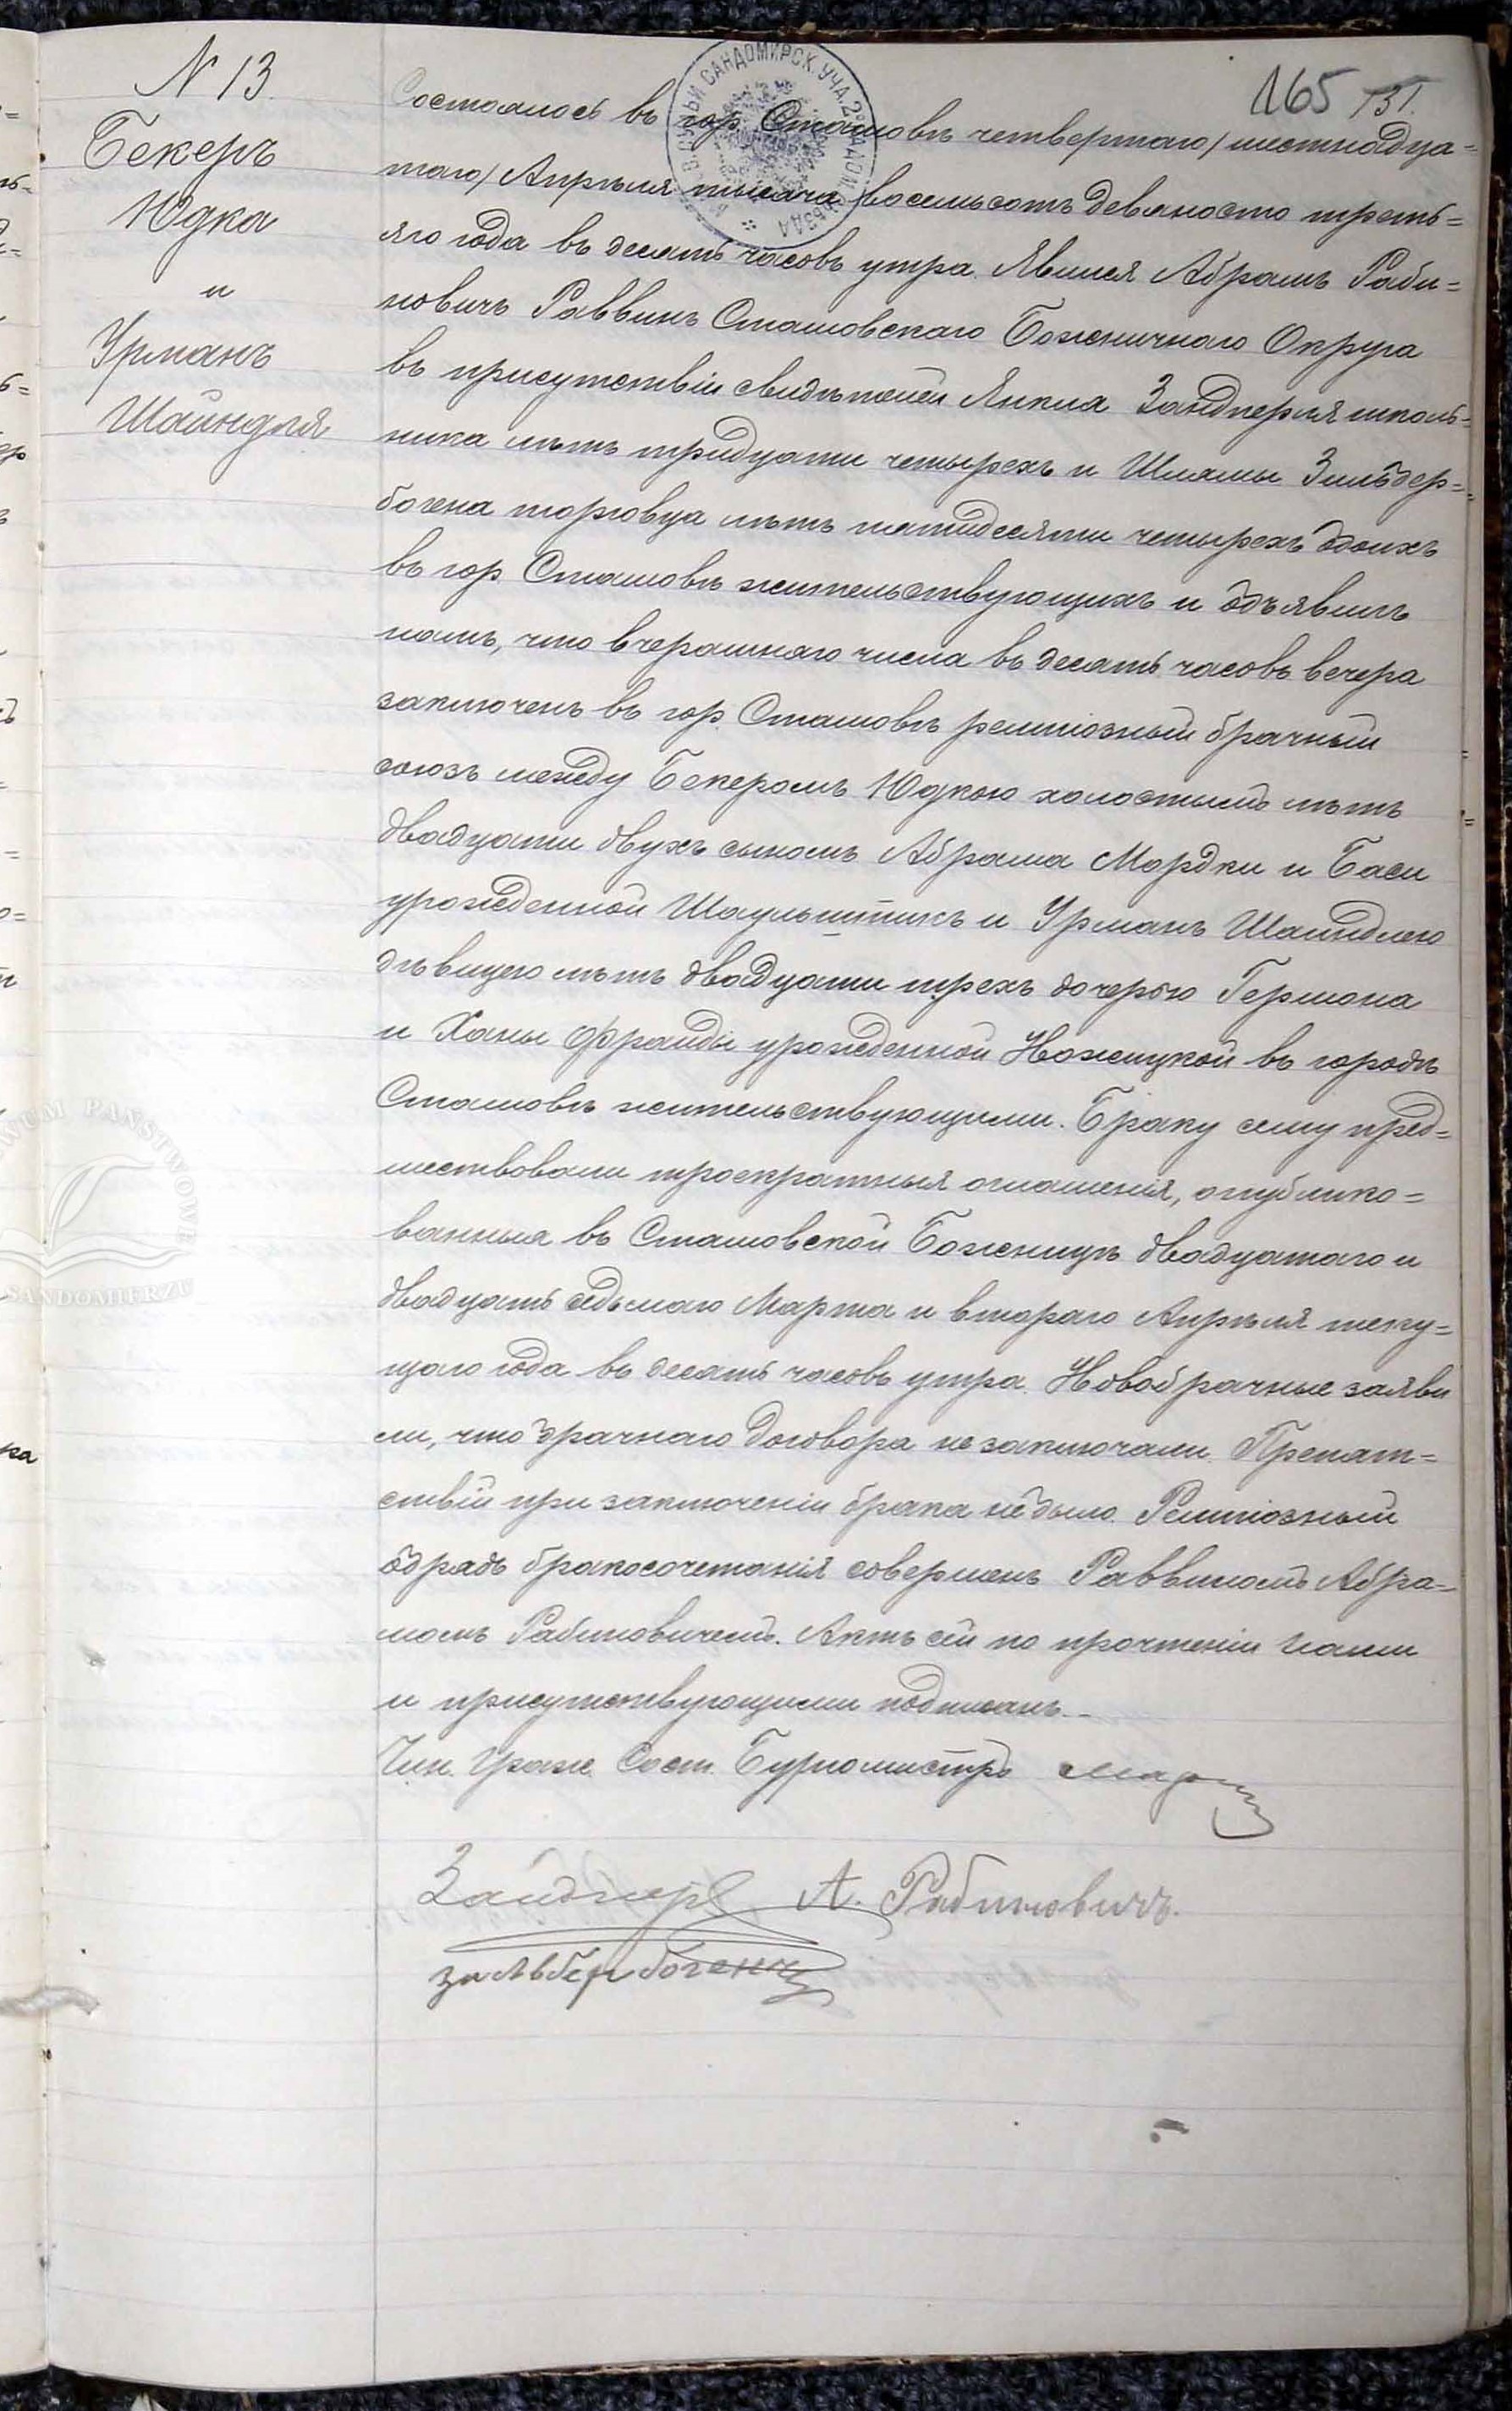 N 13
165 131.
Бекеръ
Юдка
и
Урманъ
Шайндля
Состоялось въ гор. Сташовѣ четвертаго/шестнадца=
таго/ Апрѣля тысяча восемьсотъ девяносто треть=
яго года въ десять часовъ утра. Явился Абрамъ Раби=
новичъ Раввинъ Сташовскаго Божничнаго Округа
въ присутствіи свидѣтелей Янкля Зайдперля школь=
ника лѣтъ тридцати четырехъ и Шлямы Зильбер=
богена торговца лѣтъ пятидесяти четырехъ обоихъ
въ гор Сташовѣ жительствующихъ и объявилъ
намъ, что вчерашняго числа въ десять часовъ вечера
заключенъ въ гор. Сташовѣ религіозный брачный
союзъ между Бекеромъ Юдкою холостымъ лѣтъ
двадцати двухъ сыномъ Абрама Мордки и Баси
урожденной Шаульштикъ и Урманъ Шайндлею
дѣвицею лѣтъ двадцати трехъ дочерью Гершона
и Ханы Фрайды урожденной Ножицкой въ городѣ
Сташовѣ жительствующими. Браку сему пред=
шествовали троекратныя оглашенія, опублико=
ванныя въ Сташовской Божницѣ двадцатаго и
двадцать седьмаго Марта и втораго Апрѣля теку=
щаго года въ десять часовъ утра. Новобрачные заяви
ли, что брачнаго договора не заключали. Препят=
ствій при заключеніи брака не было. Религіозный
обрядъ бракосочетанія совершенъ Раввиномъ Абра=
момъ Рабиновичемъ. Актъ сей по прочтеніи нами
и присутствующими подписанъ.
Чин. Граж. Сост. Бургомистръ
Зайдпер А. Рабиновичъ.
зильбербогенъ
САНДОМИРСК. УЧА. 2
WUM PAŃSTWOWE
SANDOMIERZU